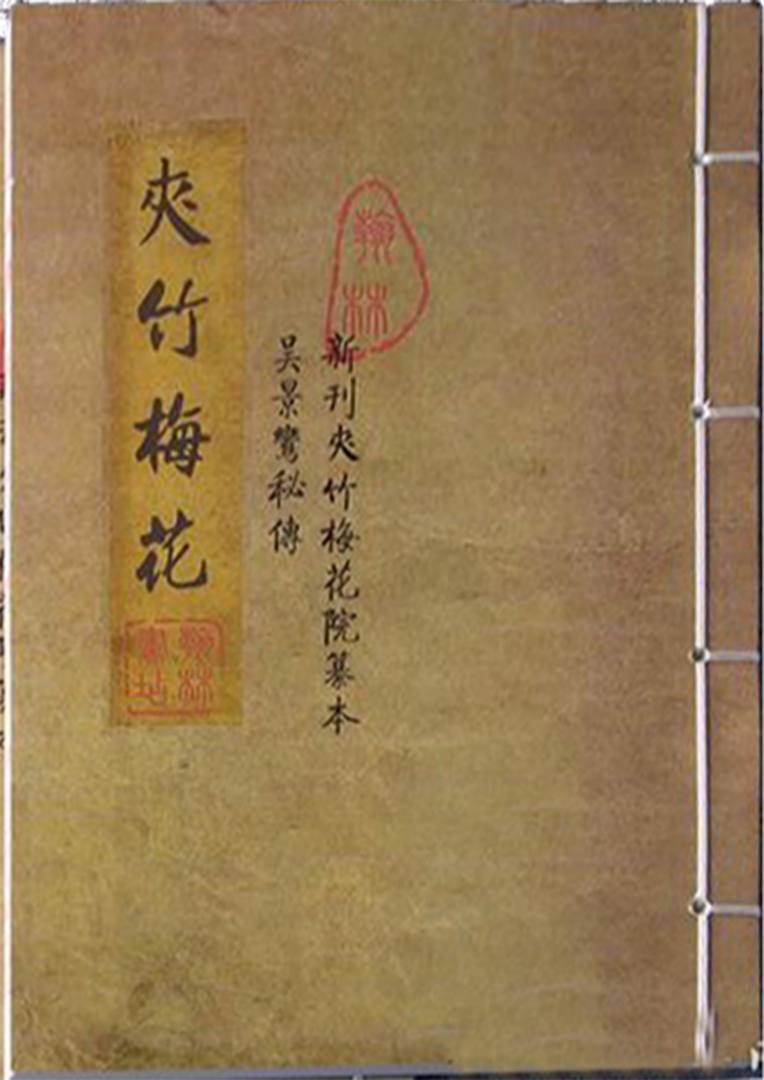 翰林
新刊夾竹梅花院纂本
吴景鸞秘傳
夾竹梅花
翰林